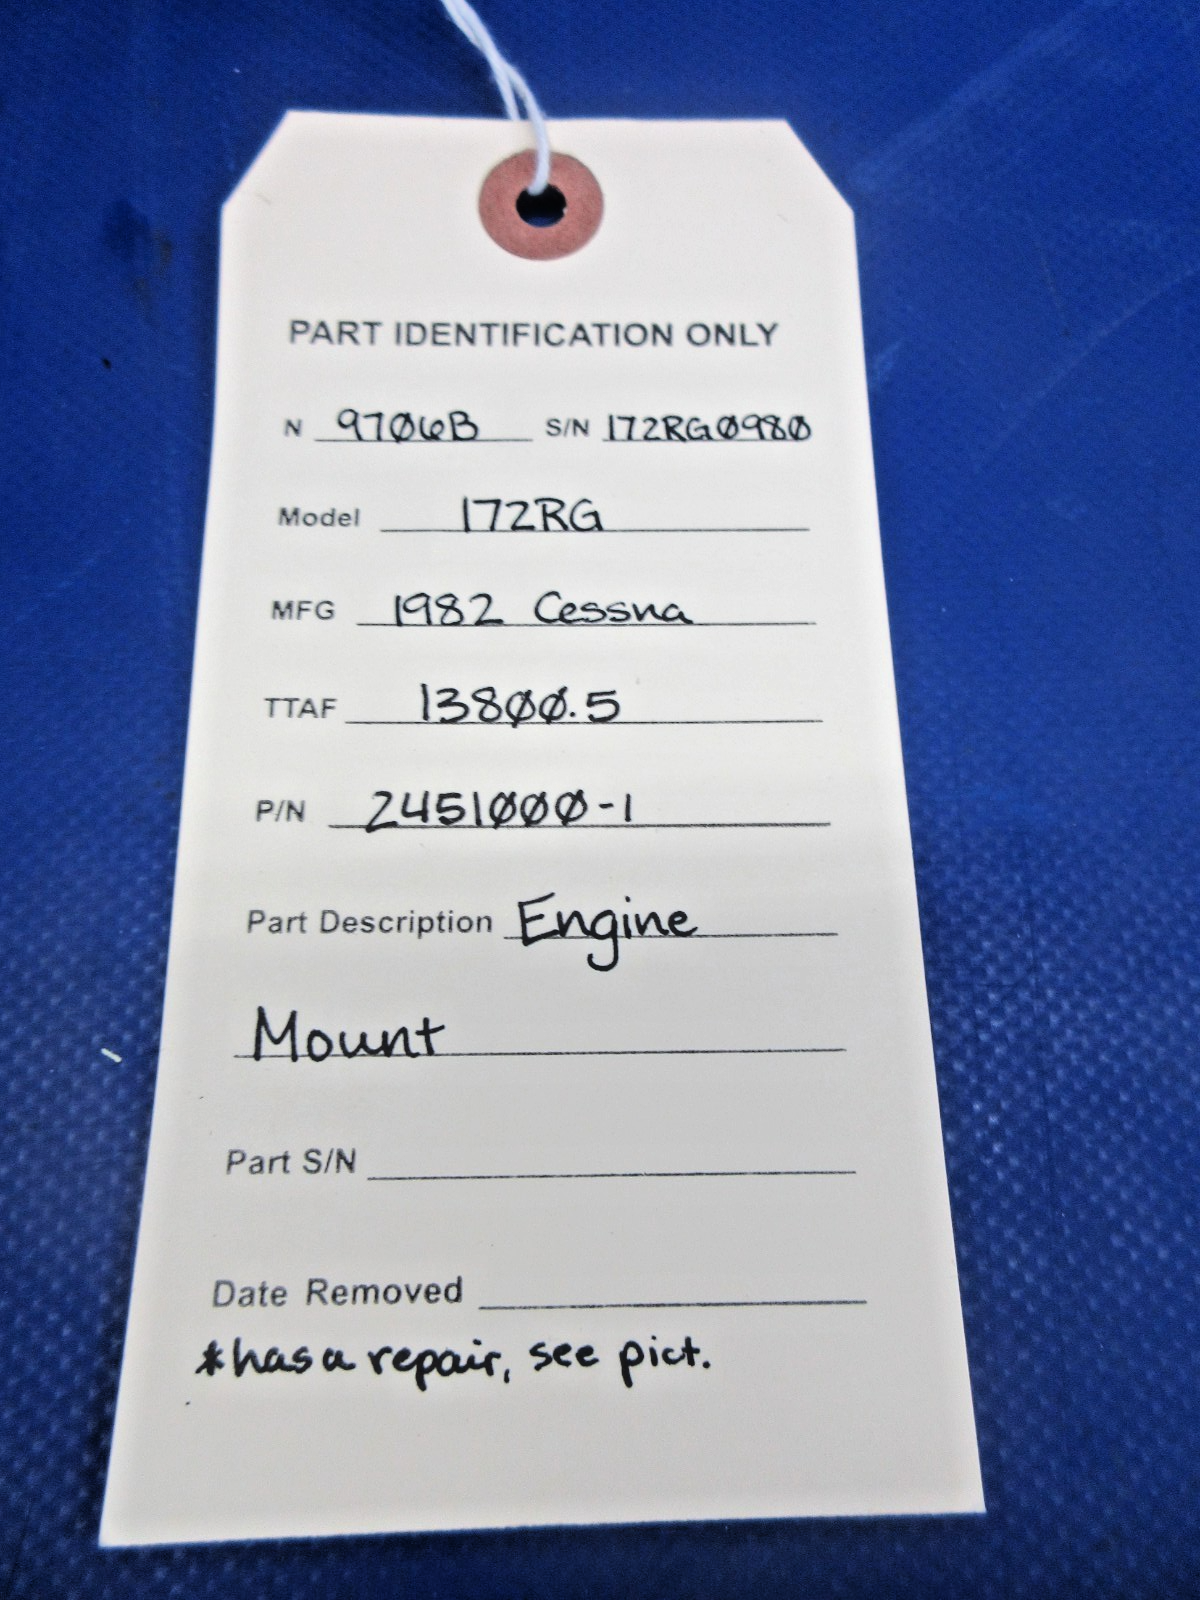 PART IDENTIFICATION ONLY
N 9706B S/N 172RG0980
Model 172RG
MFG 1982 Cessna
TTAF 13800.5
P/N 2451000-1
Part Description Engine
Mount
Part S/N
Date Removed
*has a repair, see pict.